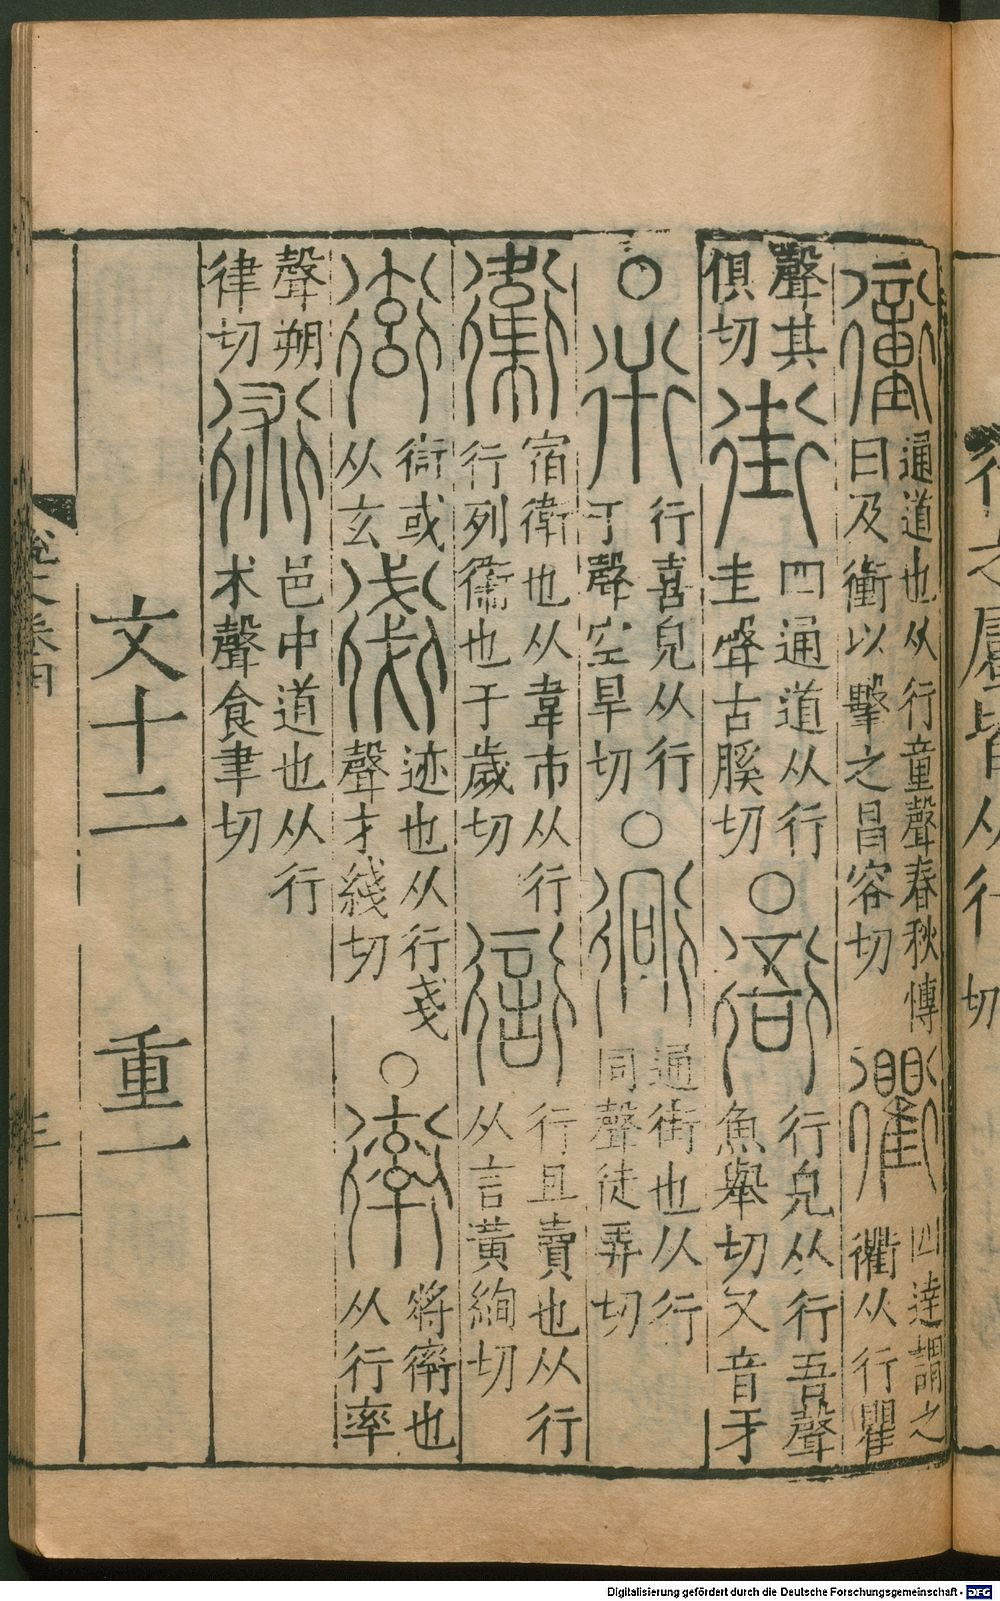 行之屬皆从行 切
𧘂 通道也从行童聲春秋傳曰及衝以擊之昌容切 衢 四達謂之衢从行瞿
聲其俱切 街 四通道从行圭聲古膎切 ○ 衙 行皃从行吾聲魚舉切又音牙
○ 衎 行喜皃从行干聲空旱切 ○ 衕 通街也从行同聲徒弄切
衞 宿衛也从韋帀从行行列衞也于歲切 𧗳 行且賣也从行从言黃絢切
衒 衒或从玄 𧗸 迹也从行戔聲才綫切 ○ 𧗿 將𧗿也从行率
聲朔律切 術 邑中道也从行朮聲食聿切
文十二 重一
說文卷四 三
Digitalisierung gefördert durch die Deutsche Forschungsgemeinschaft - DFG